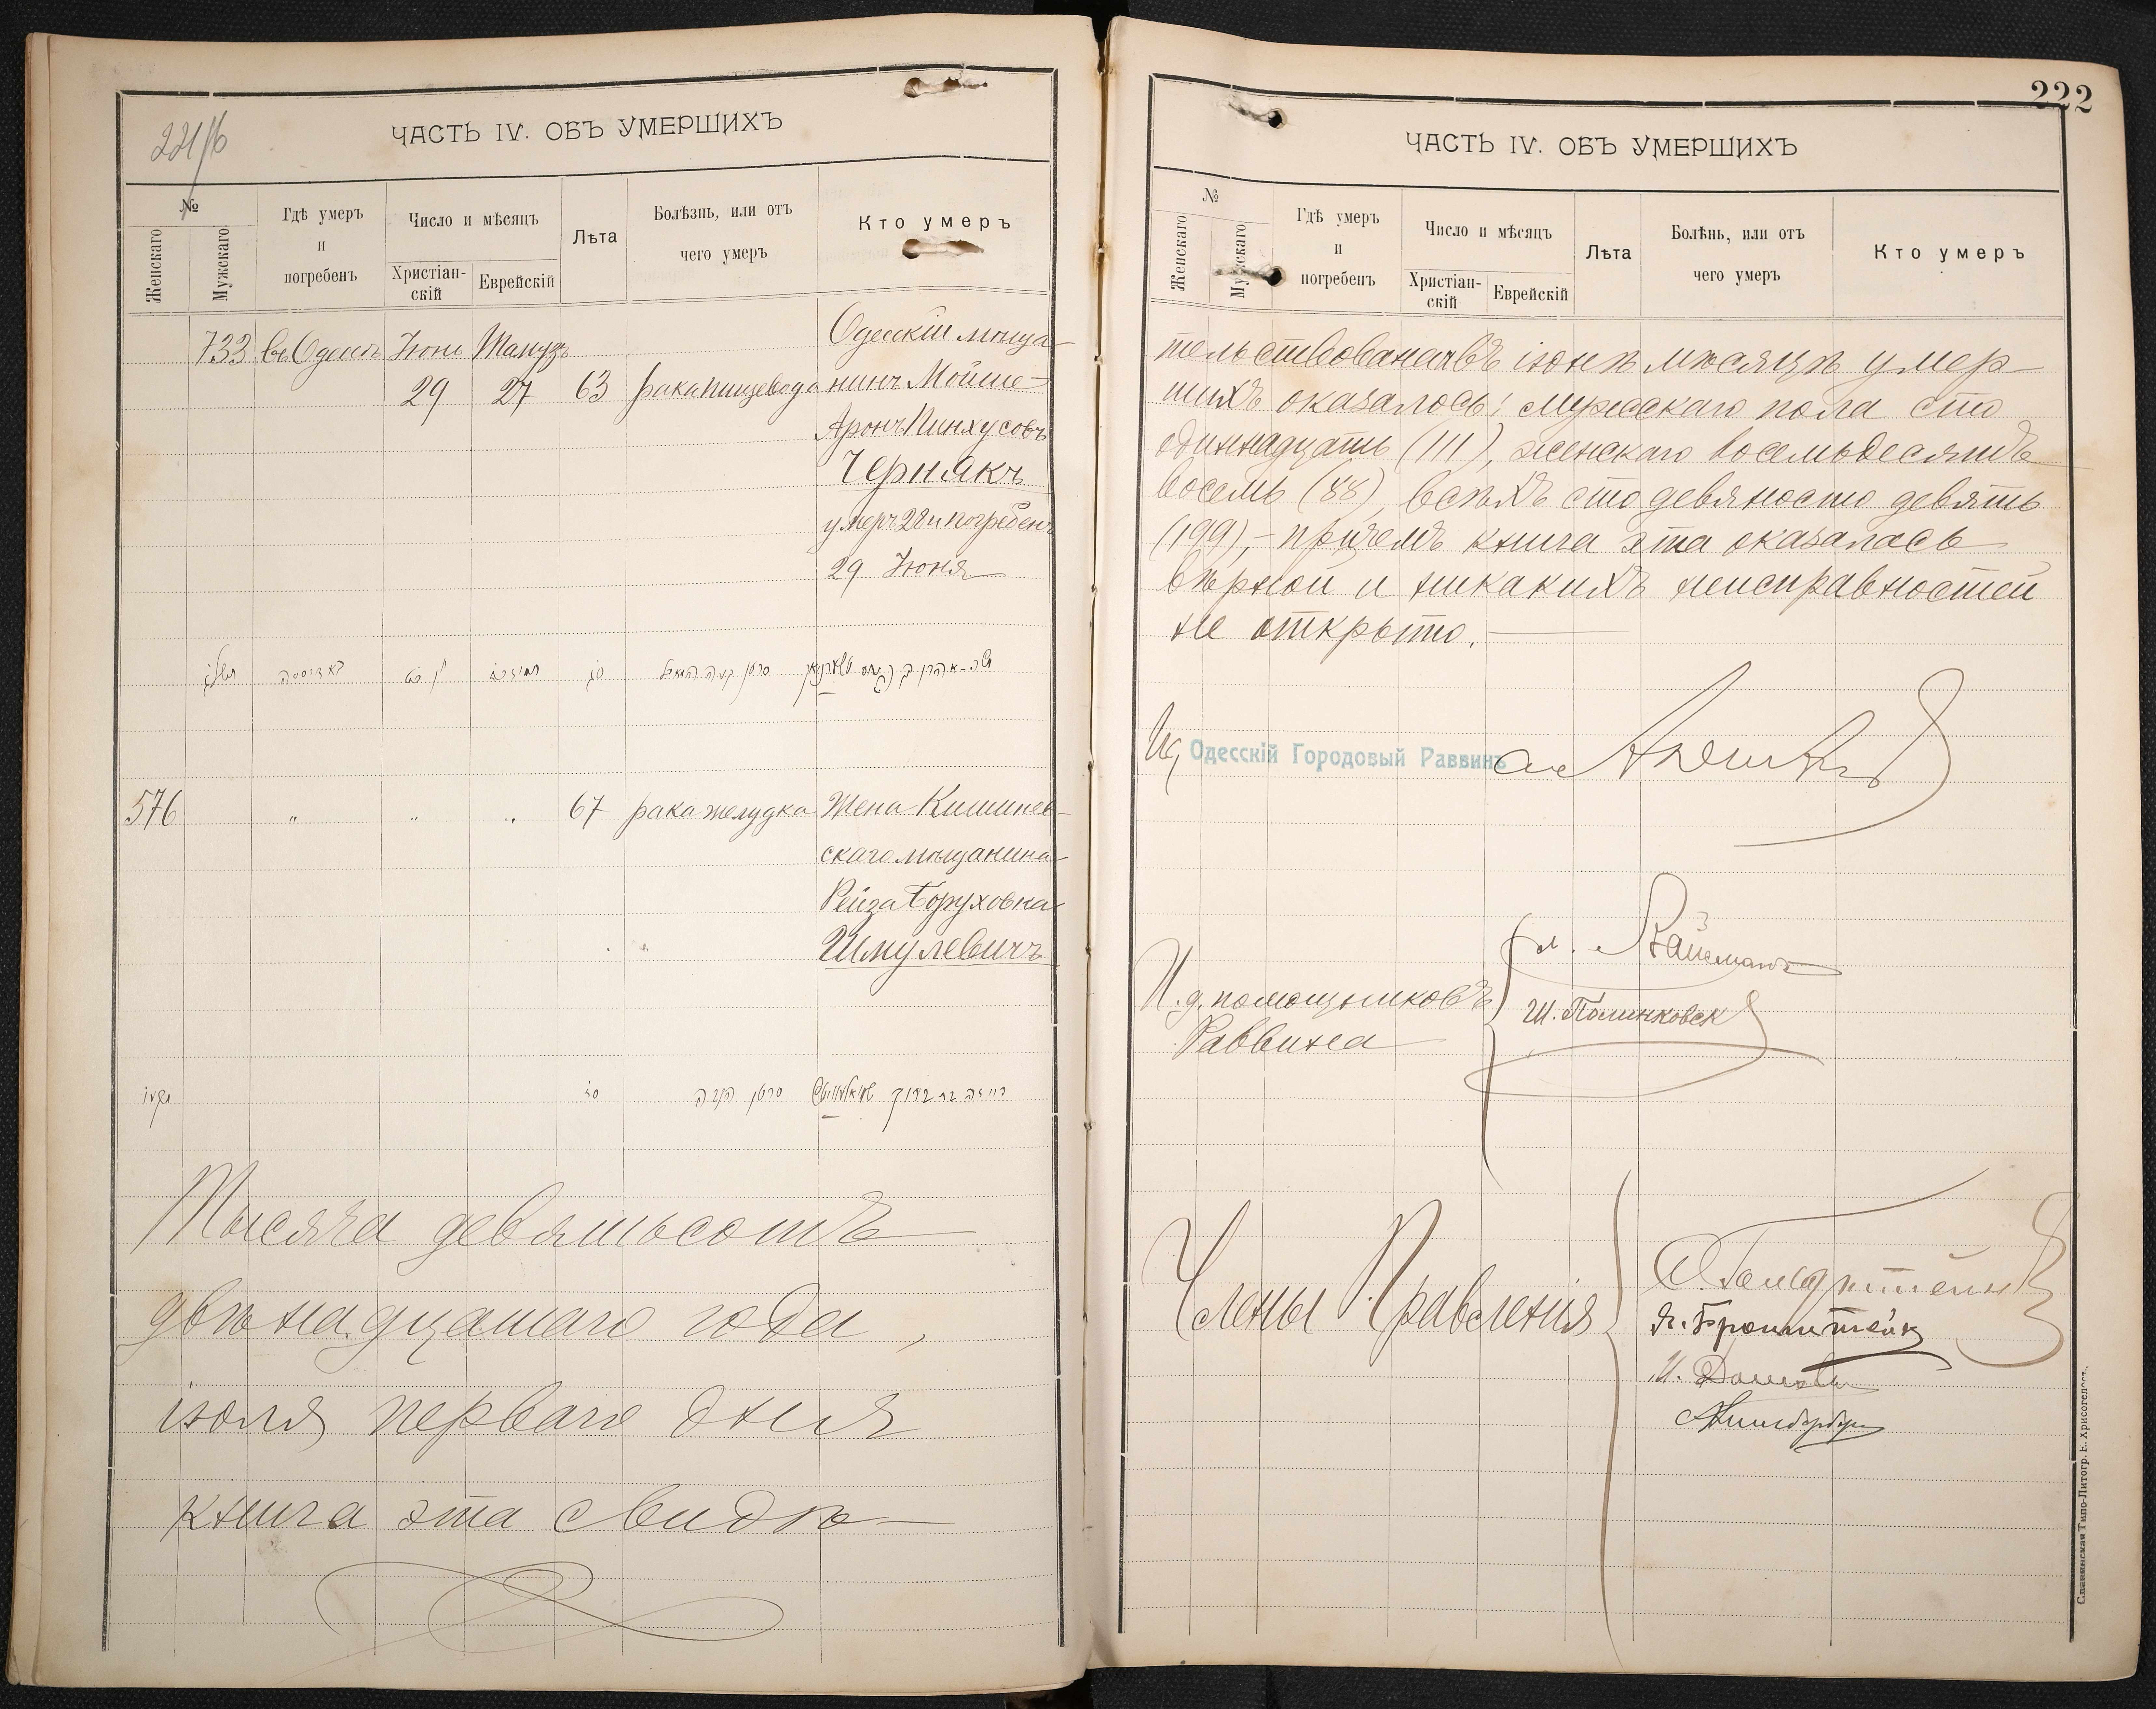 221/б
ЧАСТЬ IV. ОБЪ УМЕРШИХЪ
№
Женскаго
Мужскаго
Гдѣ умеръ
и
погребенъ
Число и мѣсяцъ
Христіан-
скій
Еврейскій
Лѣта
Болѣзнь, или отъ
чего умеръ
Кто умеръ
733 въ Одессѣ Іюнь Тамузъ Одесскій мѣща-
29 27 63 рака пищевода нинъ Мойше-
Аронъ Пинхусовъ
Чернякъ
умеръ 28 и погребенъ
29 Іюня
576 " " " 67 рака желудка Жена Кишинев-
скаго мѣщанина
Рейза Боруховна
Шмулевичъ
רייזה בת ברוך
Тысяча девятьсотъ
двѣнадцатаго года,
іюля перваго дня
книга эта свидѣ-
222
ЧАСТЬ IV. ОБЪ УМЕРШИХЪ
№
Женскаго
Мужскаго
Гдѣ умеръ
и
погребенъ
Число и мѣсяцъ
Христіан-
скій
Еврейскій
Лѣта
Болѣнь, или отъ
чего умеръ
Кто умеръ
тельствована въ іюнѣ мѣсяцѣ умер-
шихъ оказалось: мужскаго пола сто
одиннадцать (111), женскаго восемьдесятъ
восемь (88), всѣхъ сто девяносто девять
(199),- причемъ книга эта оказалась
вѣрной и никакихъ неисправностей
не открыто.
Одесскій Городовый Раввинъ
И. д. помощниковъ
Раввина
Ш. Полинковск
Члены Правленія
Я. Бронштейн
Славянская Типо-Литогр. Н. Хрисогелосъ.